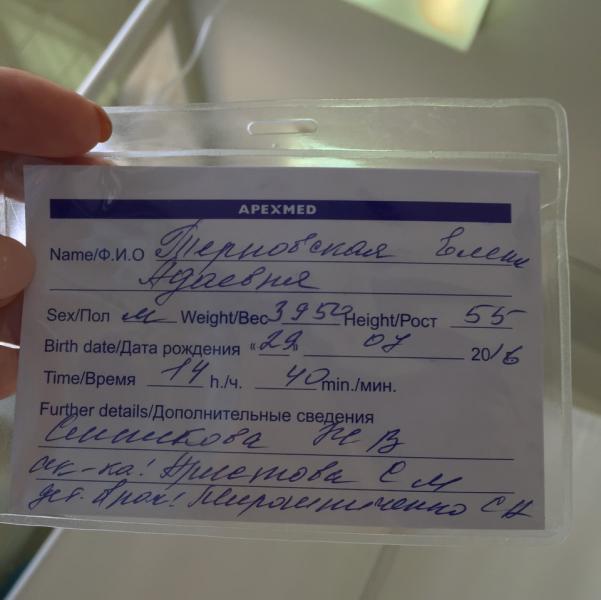 APEXMED
Name/Ф.И.О Терновская Елена
Адаевна
Sex/Пол м Weight/Вес 3950 Height/Рост 55
Birth date/Дата рождения «29 07 2016
Time/Время 14 h./ч. 40 min./мин.
Further details/Дополнительные сведения
Н В
ак-ка! Аристова С М
дет. врач! Мирошниченко С Н